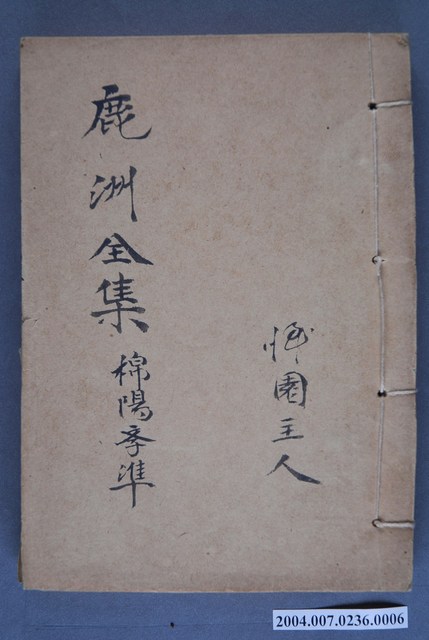 園主人
鹿洲全集 棉陽斈準
2004.007.0236.0006